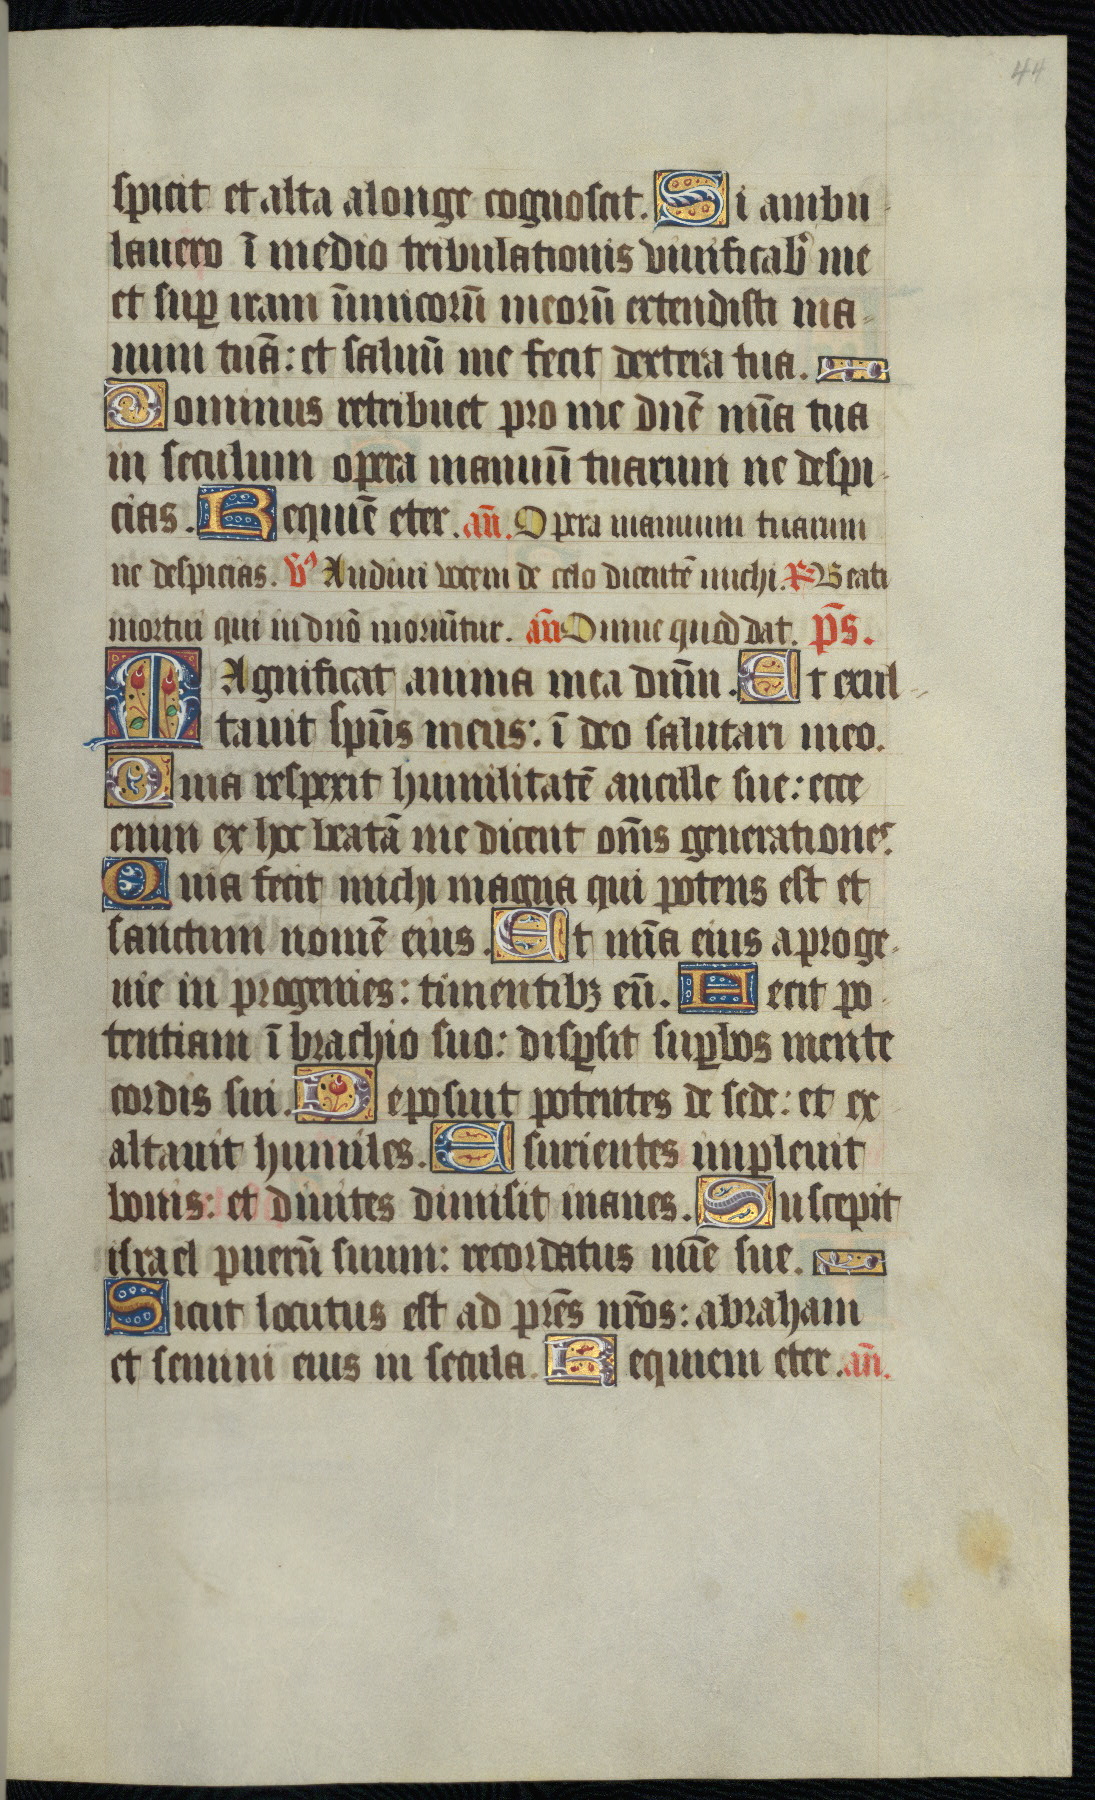 44
spicit et alta a longe cognoscit. Si ambu
lauero ī medio tribulationis viuificab᷒ me
et suꝑ iram īimicoꝝ̄ meorū extendisti ma
num tuā: et saluū me fecit dextera tua.
Dominus retribuet pro me dn̄e mīa tua
in seculum opera manuū tuarum ne despi
cias. Requiē eter. an̄. Opera manuum tuarum
ne despicias. v̉ Audiui vocem de celo dicentē michi. ꝶ Beati
mortui qui in dn̄o moriūtur. an̄ Omne quod dat. p̄s.
Magnificat anima mea dn̄m. Et exul
tauit sp̄us meus: ī deo salutari meo.
Quia respexit humilitatē ancille sue: ecce
enim ex hoc beatā me dicent om̄s generationes.
Quia fecit michi magna qui potens est et
sanctum nomē eius. Et mīa eius a proge
nie in progenies: timentibꝫ eū. Fecit po
tentiam ī brachio suo: disꝑsit suꝑbos mente
cordis sui. Deposuit potentes de sede: et ex
altauit humiles. Esurientes impleuit
bonis: et diuites dimisit inanes. Suscepit
israel puerū suum: recordatus mīe sue.
Sicut locutus est ad pr̄es nr̄os: abraham
et semini eius in secula. Requiem eter. an̄.